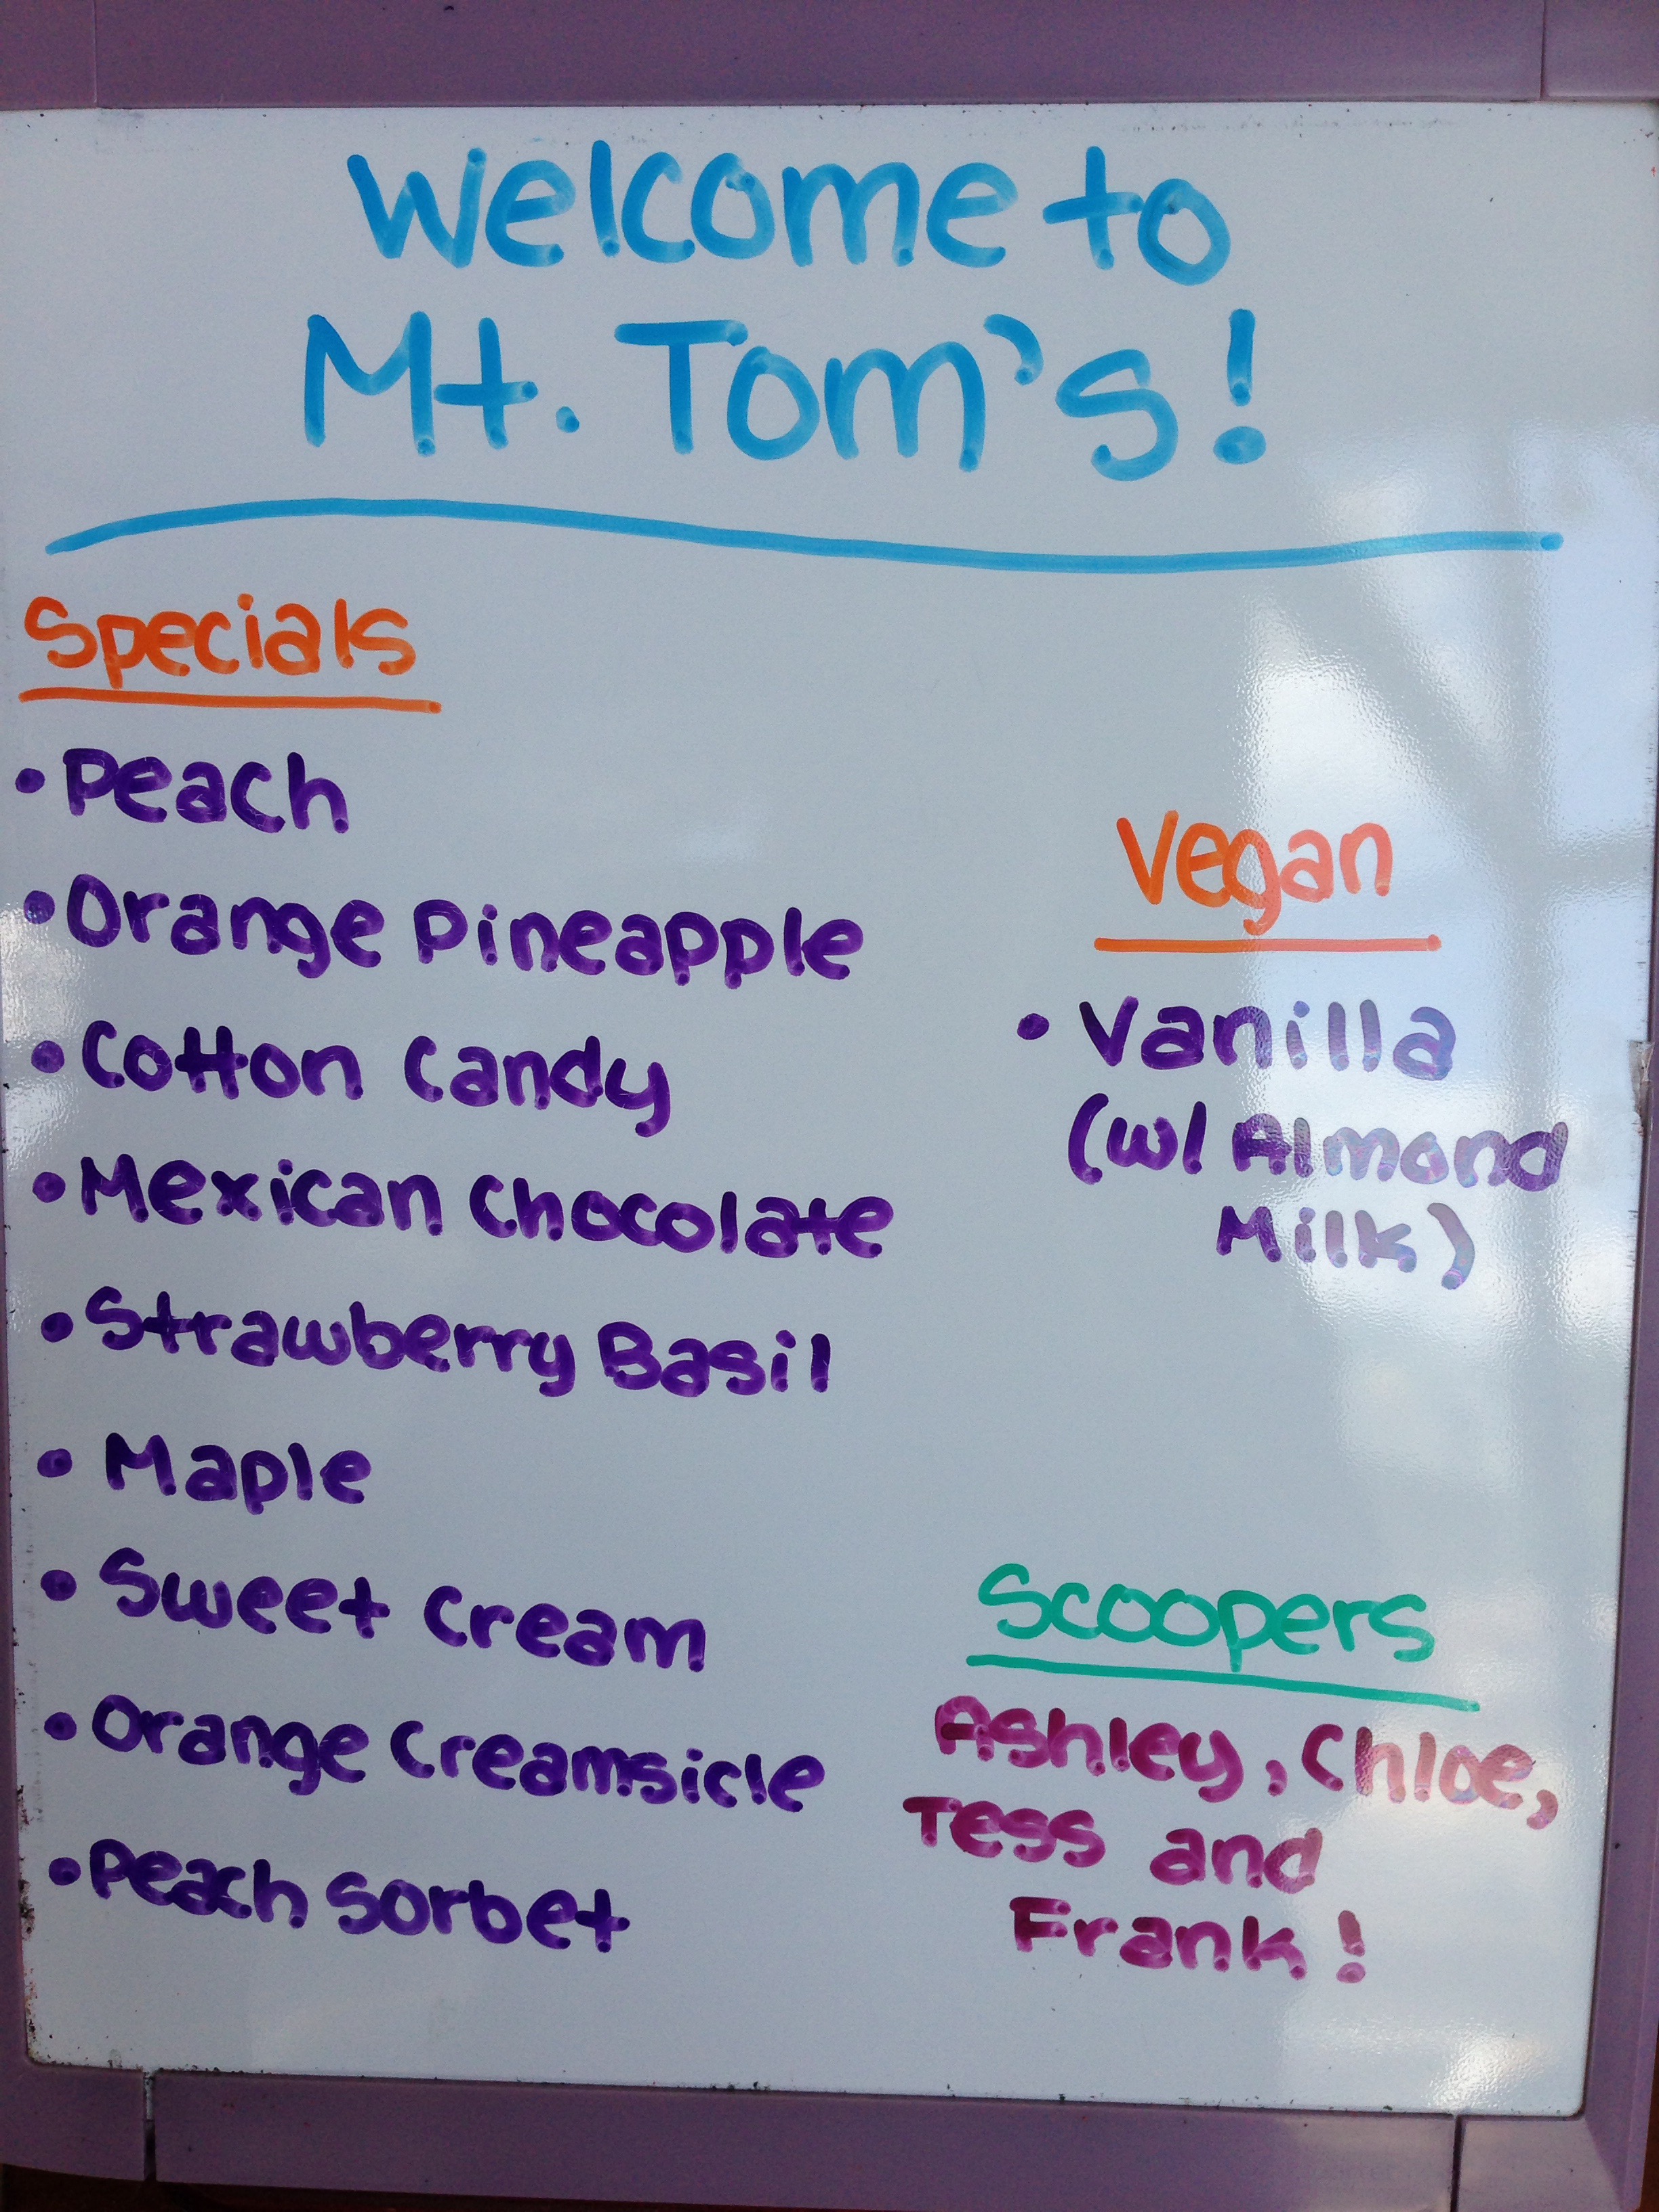 Welcome to
Mt. Tom's!
Specials
• Peach
• Orange Pineapple
• Cotton Candy
• Mexican Chocolate
• Strawberry Basil
• Maple
• Sweet Cream
• Orange Creamsicle
• Peach Sorbet
Vegan
• Vanilla
(w/ Almond
Milk)
Scoopers
Ashley, Chloe,
Tess and
Frank!